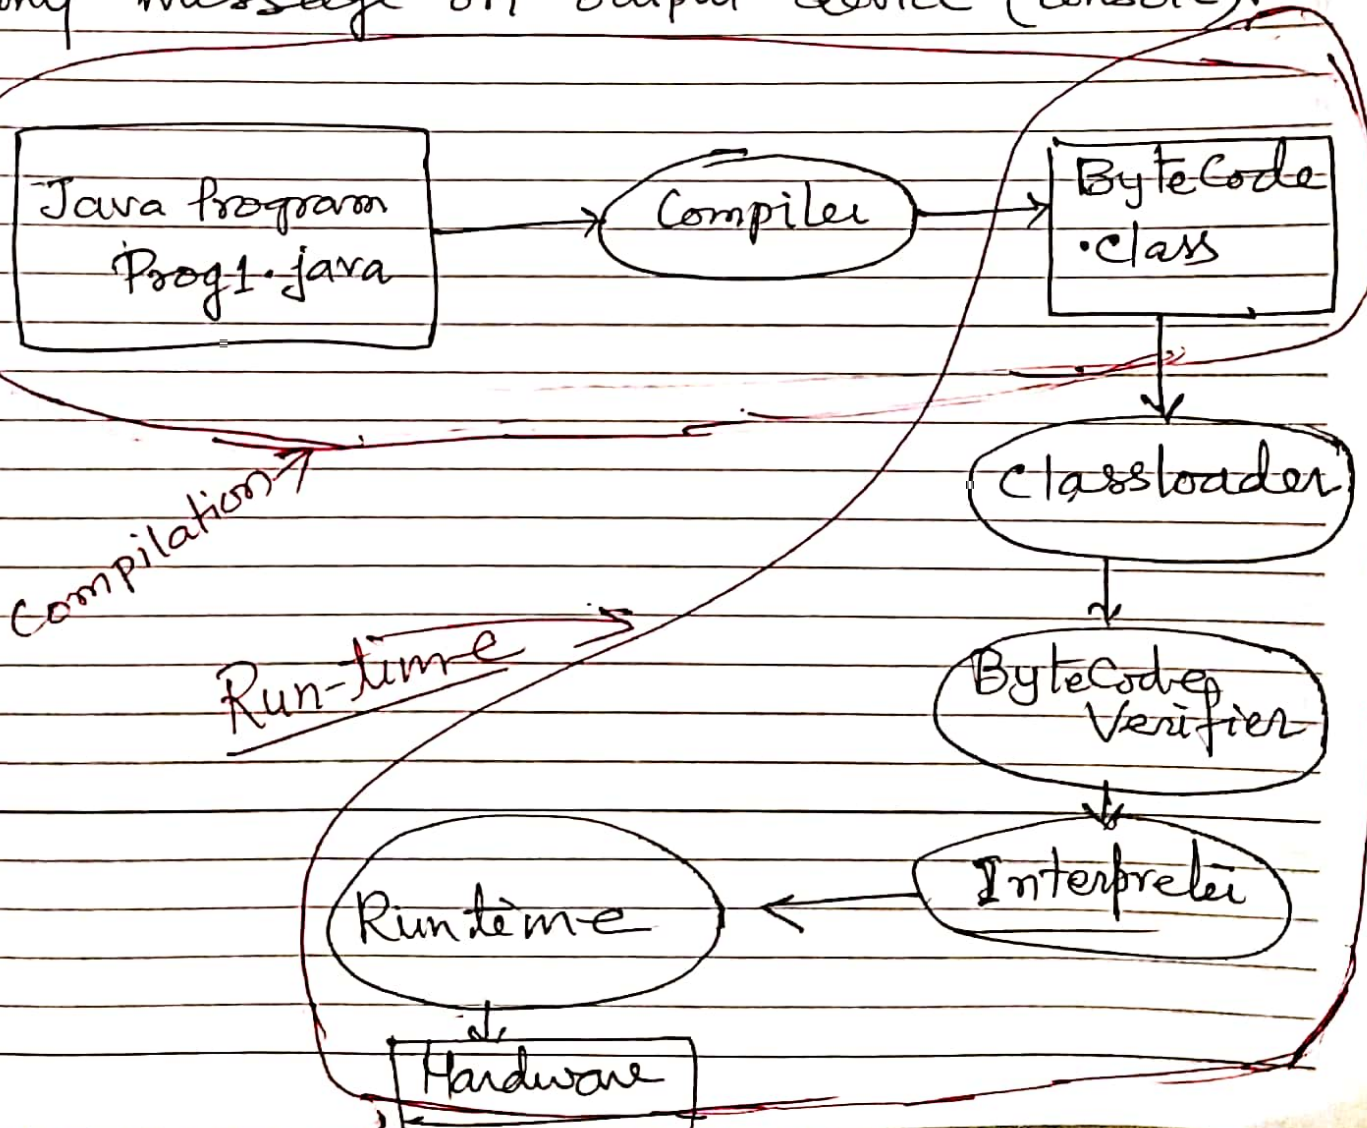 message on output device (console).
Java Program
Prog1.java
Compiler
ByteCode
.class
Classloader
Compilation
Run-time
ByteCode
Verifier
Interpreter
Runtime
Hardware